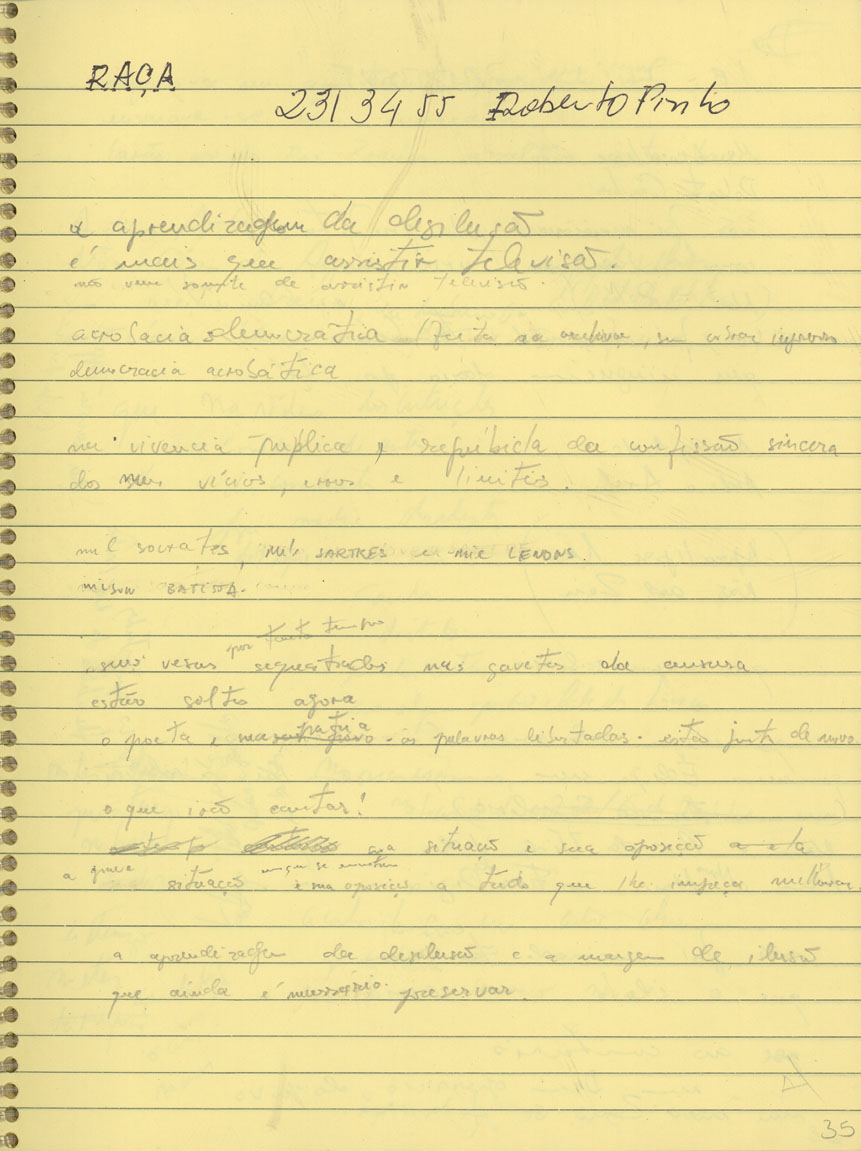 RAÇA
231 34 55 Roberto Pinho
a aprendizagem da desilusão
é mais que assistir televisão.
não vem somente de assistir televisão.
acrobacia democrática
democracia acrobática
vivencia pública, da confissão sincera
dos vicios, erros e limites.
mil socrates, mil SARTRES e mil LENONS.
BATISTA.
por tanto tempo
seus versos sequestrados nas gavetas da censura
estão soltos agora
pátria
o poeta e as palavras libertadas. estão juntos de novo
o que irão cantar!
situação e sua oposição
a grave situação em que se encontra
e sua oposição a tudo que lhe impeça melhorar
a aprendizagem da desilusão e a margem de ilusão
que ainda é necessário preservar.
35